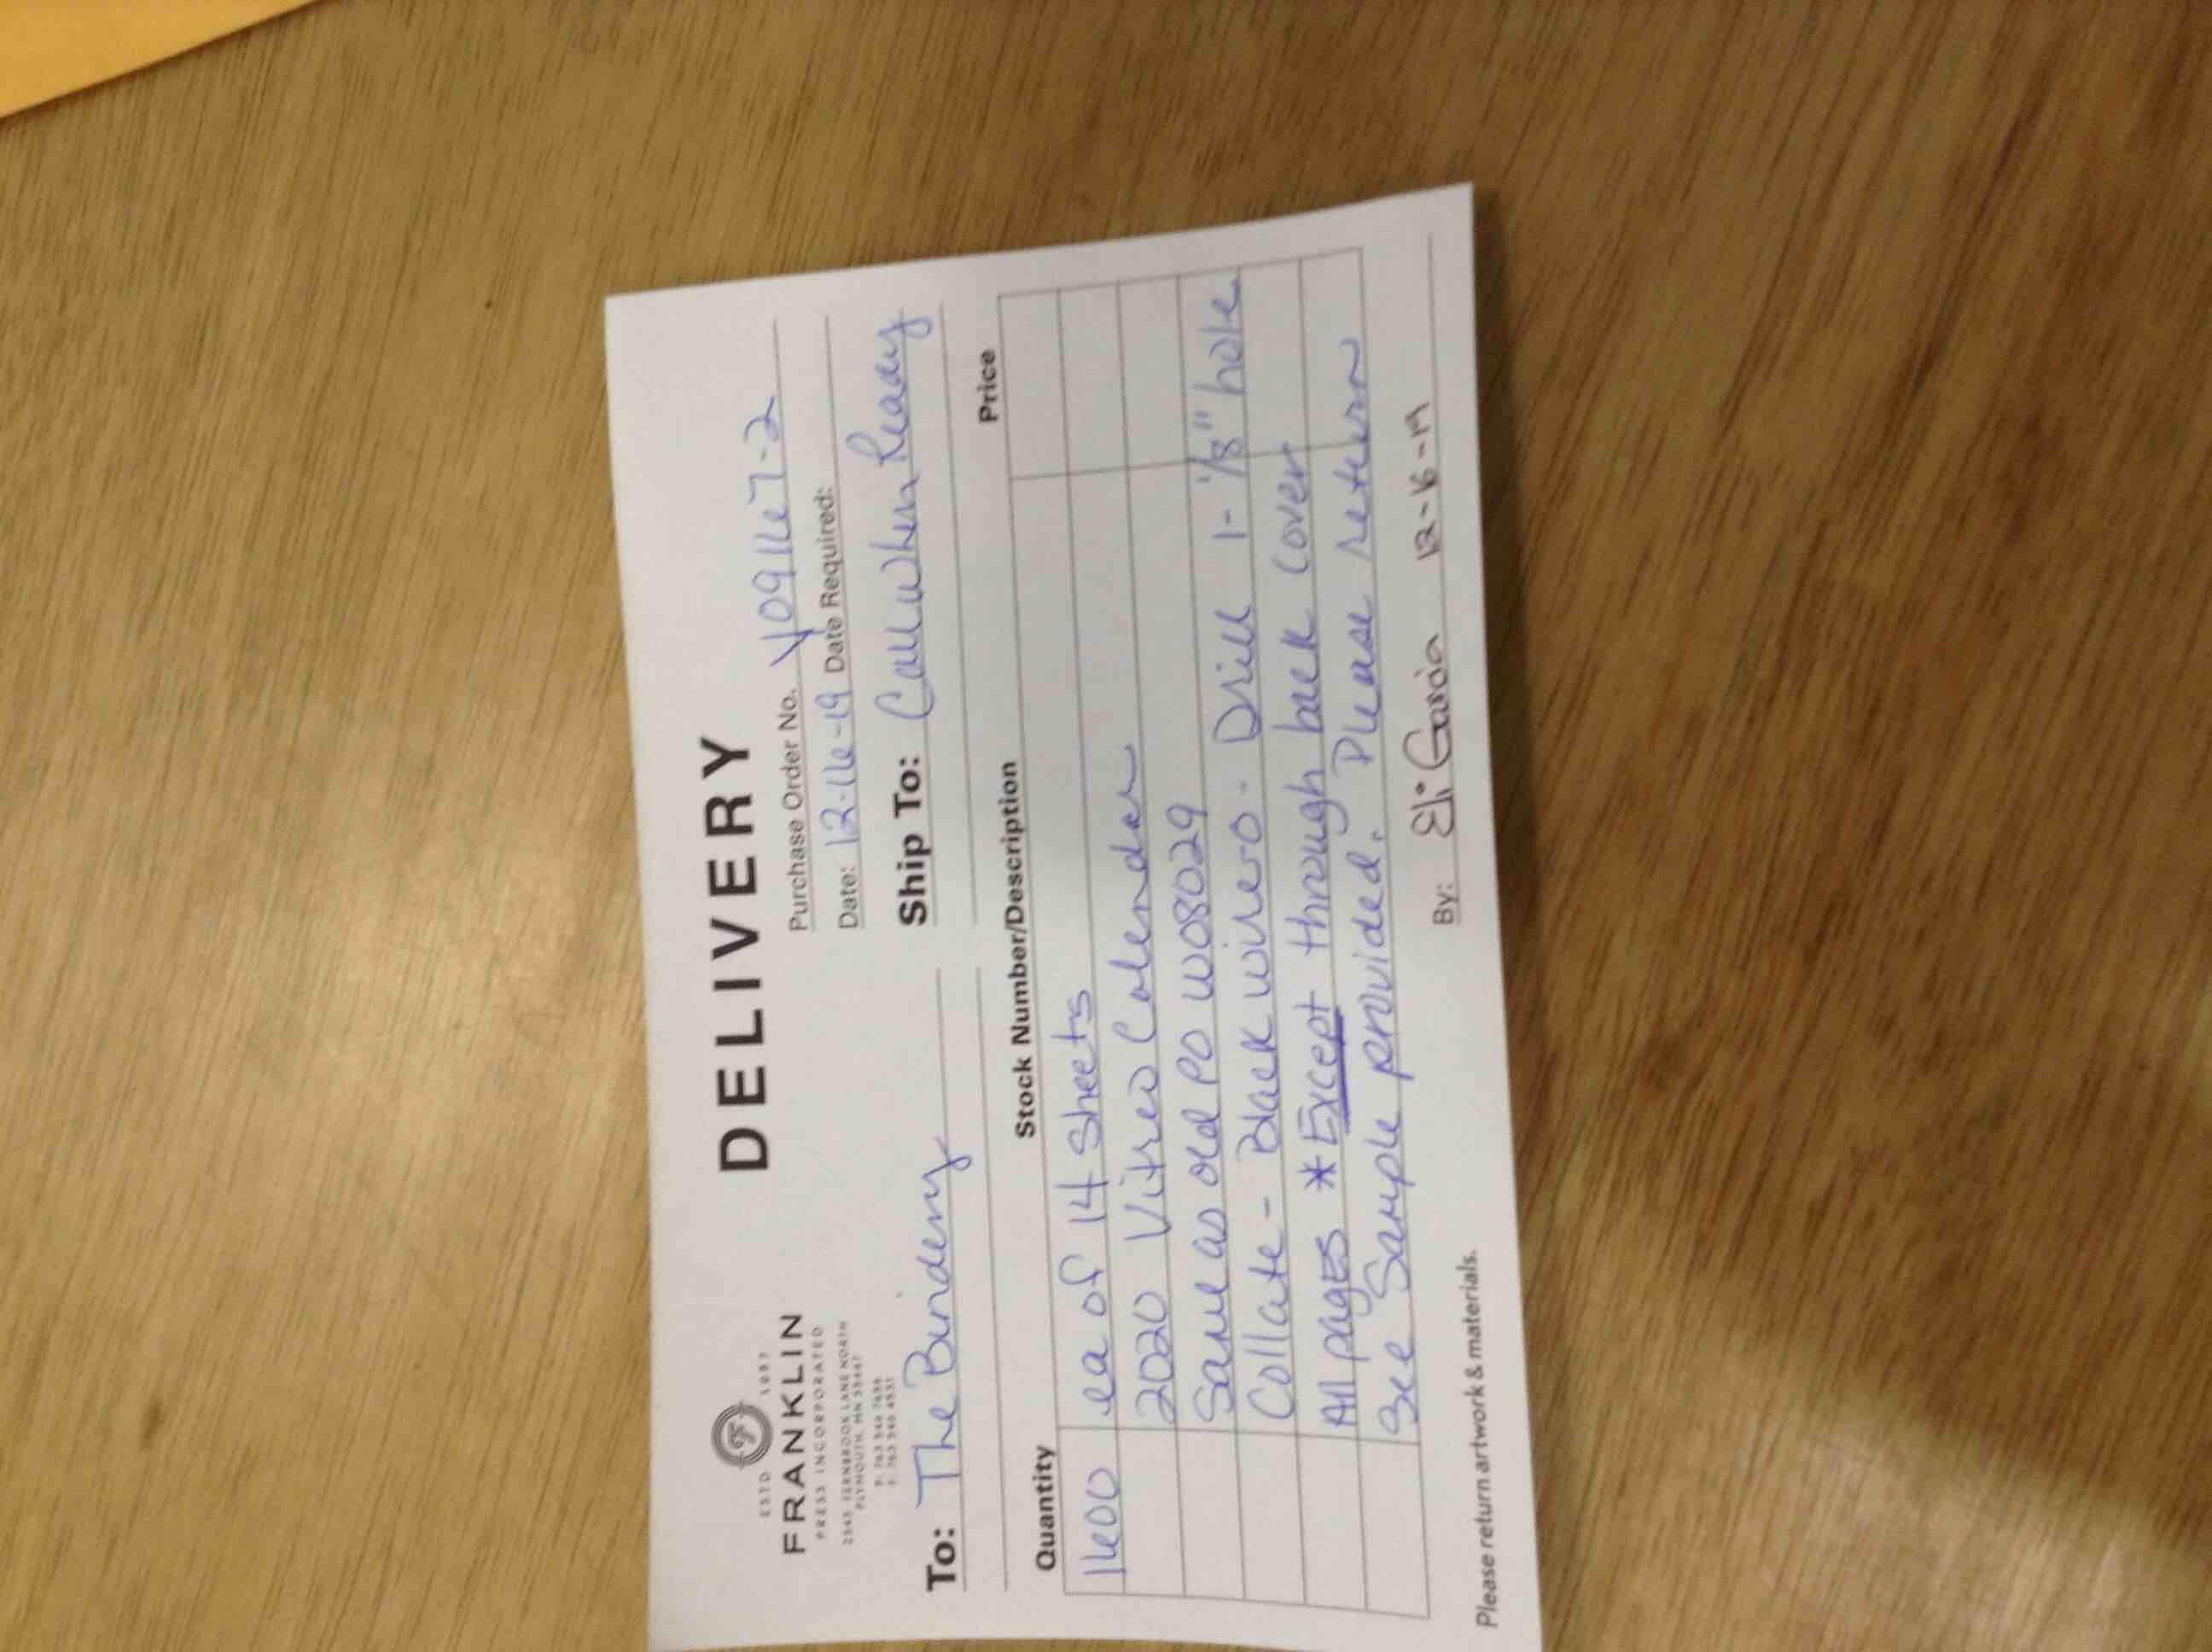 ESTD 1987
FRANKLIN
PRESS INCORPORATED
2345 FERNBROOK LANE NORTH
PLYMOUTH, MN 55447
P: 763 546
F: 763 546 4531
DELIVERY
Purchase Order No. Y09167-2
Date: 12-16-19 Date Required:
To: The Bindery
Ship To: Call when Ready
Quantity Stock Number/Description Price
1600 ea of 14 Sheets
2020 Vitreo Calendar
Same as old PO W08029
Collate - Black wireo - Drill 1-1/8" hole
All pages * Except through back cover
See Sample provided. Please return
Please return artwork & materials.
By: Eli Garcia 12-16-19